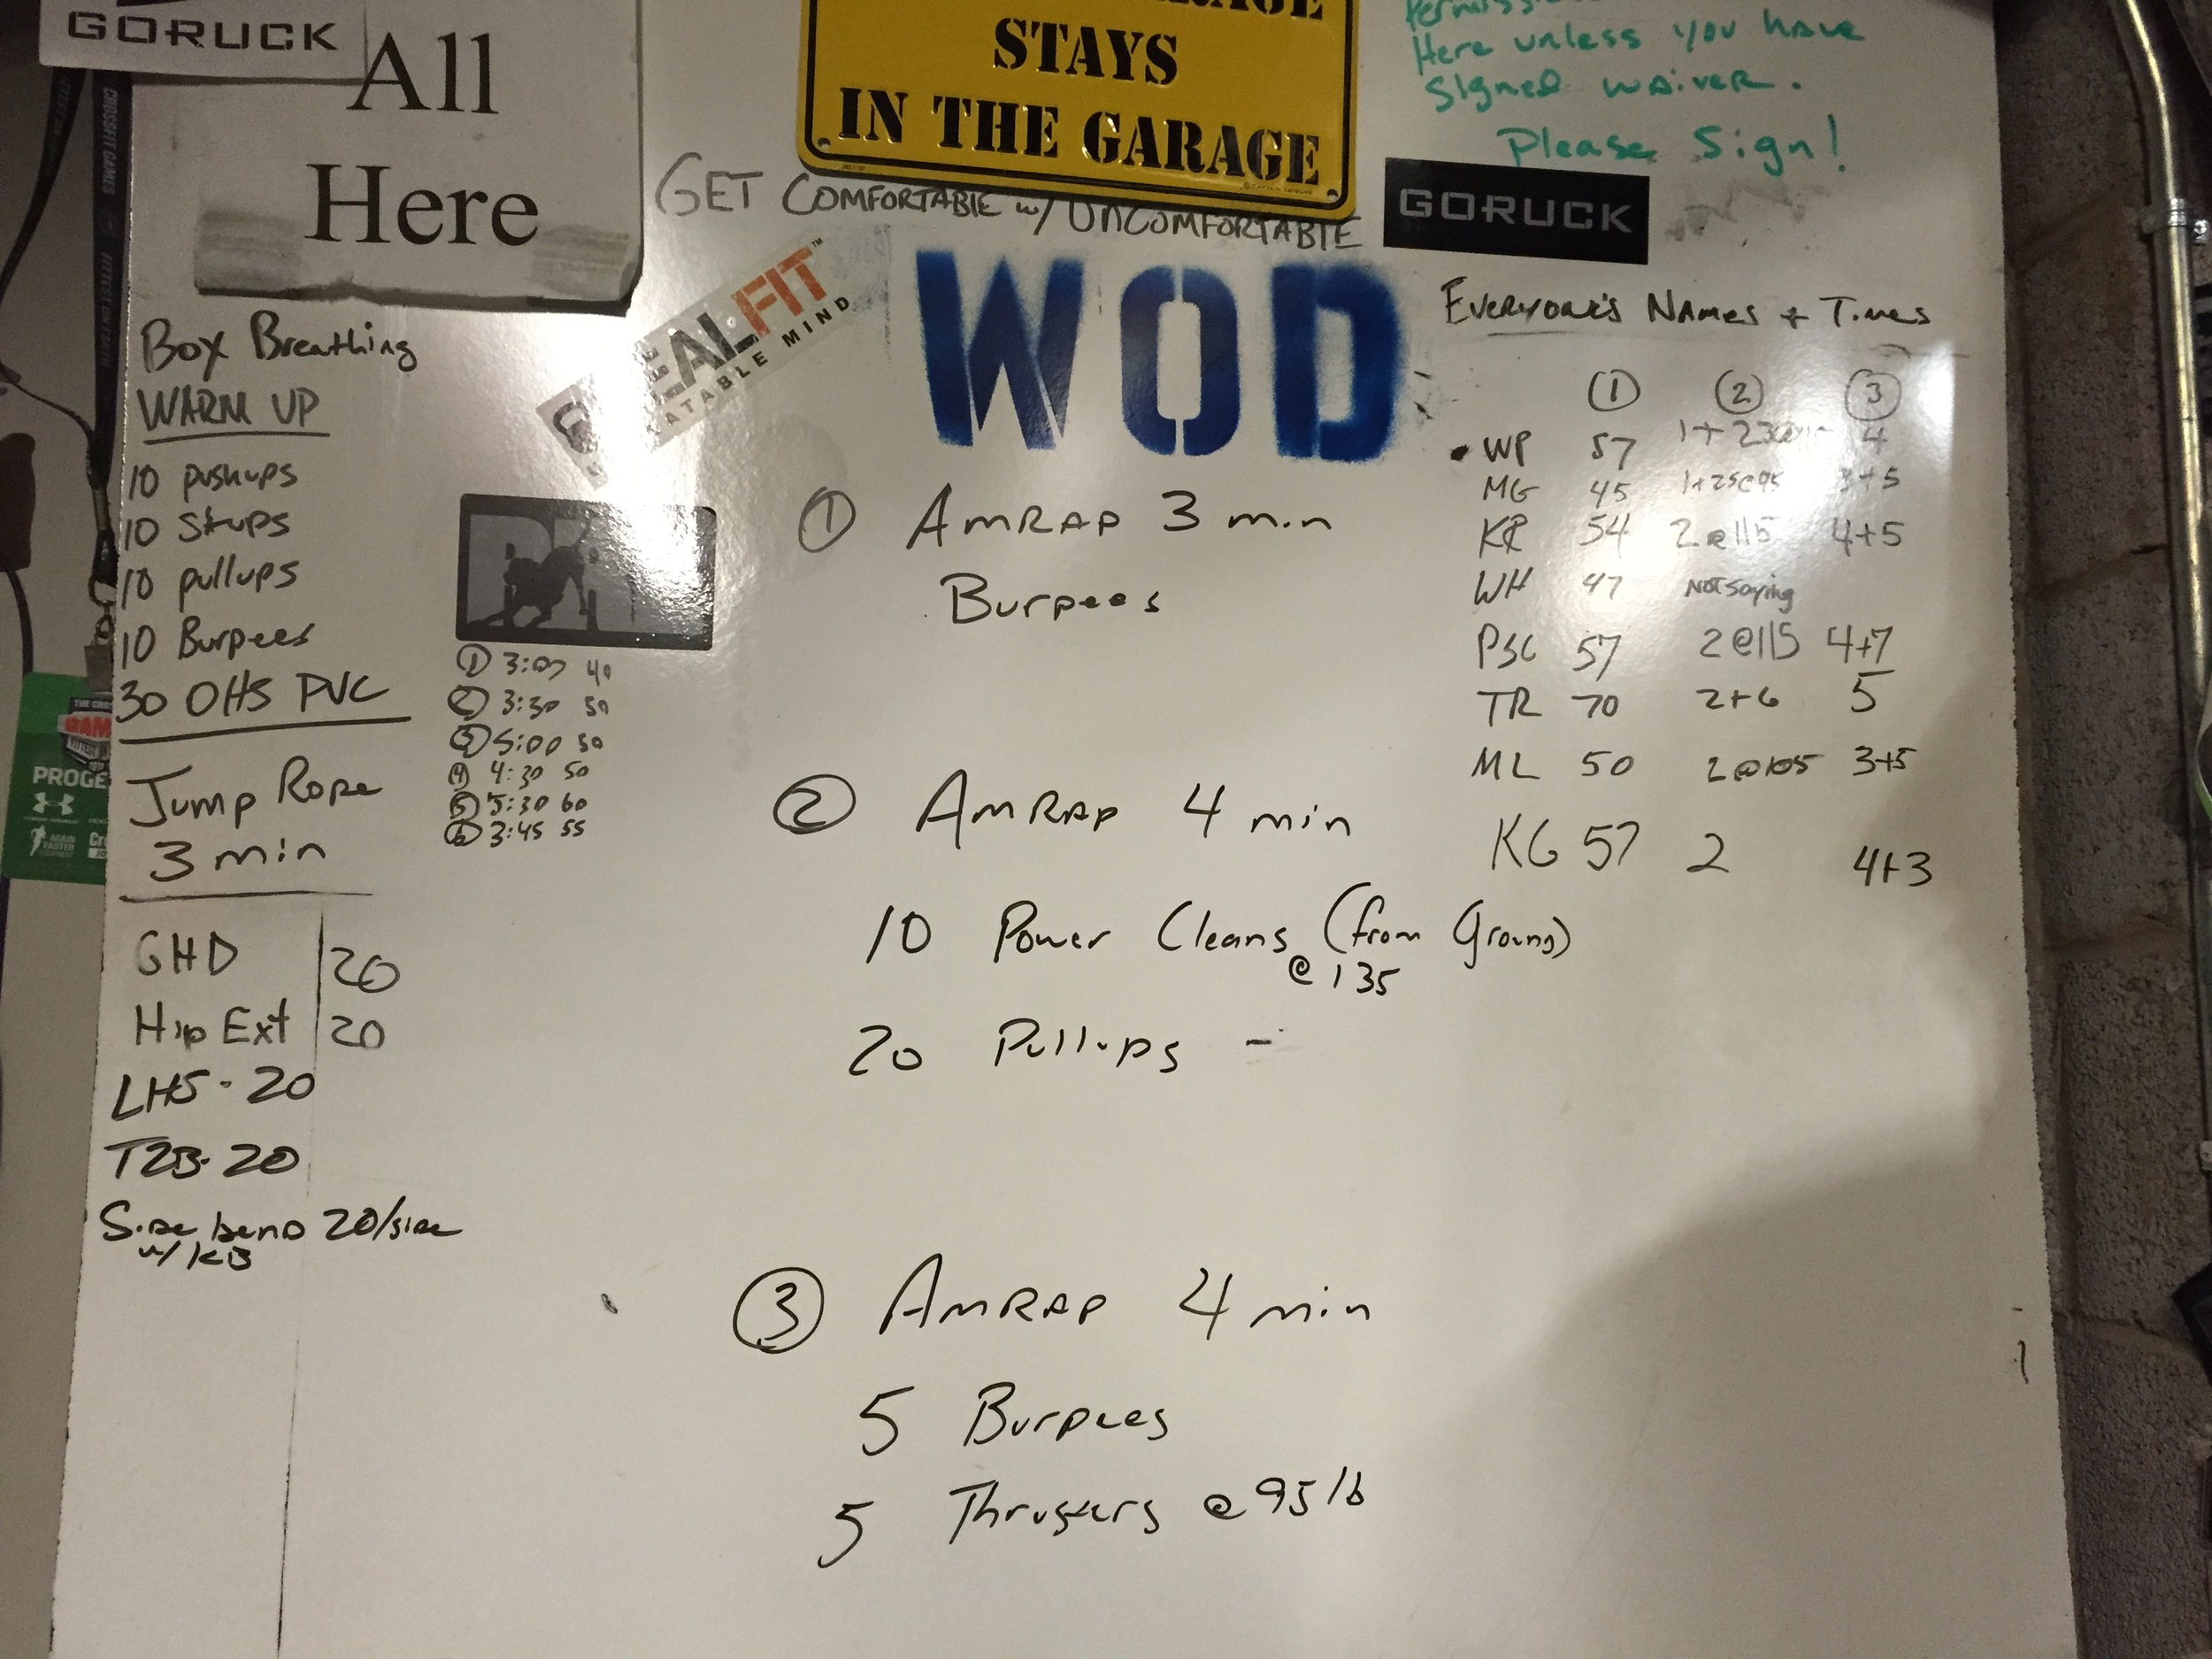 GORUCK
All
Here
STAYS
IN THE GARAGE
Here unless you have
signed waiver.
Please Sign!
GORUCK
GET COMFORTABLE w/ UNCOMFORTABLE
EALFIT™
ATABLE MIND
WOD
CROSSFIT GAMES
Box Breathing
WARM UP
10 pushups
10 Situps
10 pullups
10 Burpees
30 OHS PVC
Jump Rope
3 min
GHD 20
Hip Ext 20
LHS - 20
T2B - 20
Side bend 20/side
w/ KB
① 3:07 40
② 3:30 50
③ 5:00 50
④ 4:30 50
⑤ 5:30 60
⑥ 3:45 55
PROGE
AGAIN
FASTER
① AMRAP 3 min
Burpees
② AMRAP 4 min
10 Power Cleans (from Ground)
@ 135
20 Pullups -
③ AMRAP 4 min
5 Burpees
5 Thrusters @ 95 lb
EVERYONE'S NAMES + TIMES
① ② ③
WP 57 1+23@ 4
MG 45 1+25@95 3+5
KR 54 2@115 4+5
WH 47 Not saying
PSC 57 2@115 4+7
TR 70 2+6 5
ML 50 2@105 3+5
KG 57 2 4+3